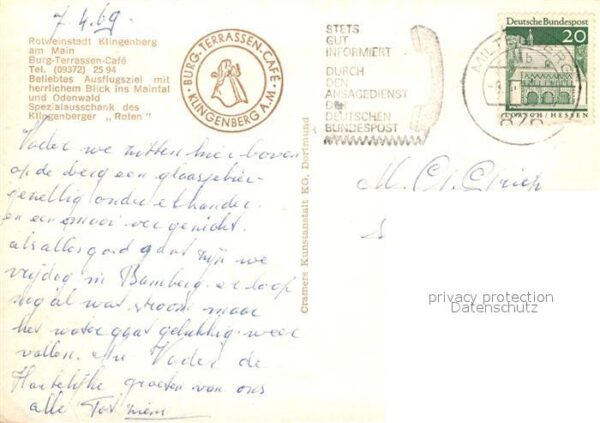 7.4.69.
Rotweinstadt Klingenberg
am Main
Burg-Terrassen-Café
Tel. (09372) 25 94
Beliebtes Ausflugsziel mit
herrlichem Blick ins Maintal
und Odenwald
Spezialausschank des
Klingenberger „Roten"
BURG-TERRASSEN-CAFÉ
KLINGENBERG A.M.
STETS
GUT
INFORMIERT
DURCH
DEN
ANSAGEDIENST
DER
DEUTSCHEN
BUNDESPOST
MILTENBERG
Deutsche Bundespost
20
LORSCH/HESSEN
Cramers Kunstanstalt KG, Dortmund
Vader we zitten hier boven
op de berg een glaasje bier
gezellig onder elkander.
en een mooi vergezicht.
als alles goed gaat zijn we
vrijdag in Bamberg. er loop
nog al wat stroom maar
het water gaat gelukkig weer
vallen. Vader de
Hartelijke groeten van ons
alle Tot
privacy protection
Datenschutz